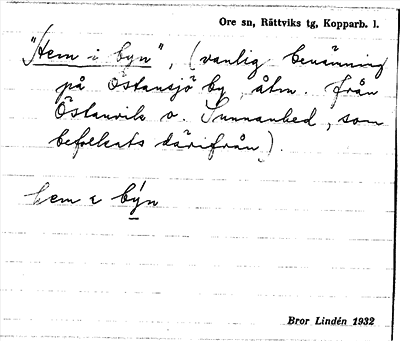 Ore sn, Rättviks tg, Kopparb. l.
"Hem i byn", (vanlig benämning
på Östansjö by, åtm. från
Östanvik o. Sunnanhed, som
befolkats därifrån).
hem ɩ by̍n
Bror Lindén 1932